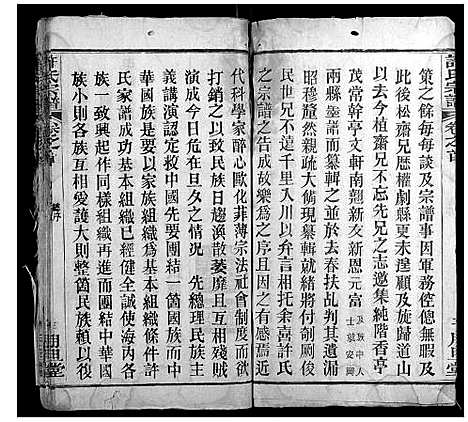 許氏宗譜
卷之首
策之餘每每談及宗譜事因軍務倥傯無暇及
此後松齋兄歷權劇縣更未遑顧及旋歸道山
至今思之植齋兄不忘先兄之志邀集純階香亭
茂常幹亭文軒南龍新亥新恩元富及族中人士募安興
兩縣墨譜而纂輯之並於去春扶乩判其遺漏
昭穆釐然親疏大倫現纂輯就緒將付剞劂俊
民世兄不遠千里入川以弁言相托余喜許氏
之宗譜之告成故樂爲之序且因之有感焉近
代科學家醉心歐化菲薄宗法社會制度而欲
打銷之以致民族日趨渙散萎靡且互相殘賊
演成今日危在旦夕之情况 先總理民族主
義講演認定救中國先要團結一箇國族而中
華國族是要以家族組織爲基本組織條件許
氏家譜成功基本組織已經健全誠使海內各
族一致興起作同樣組織再進而團結中華國
族小則各族互相愛護大則整箇民族賴以復
許氏宗譜
卷之首
序